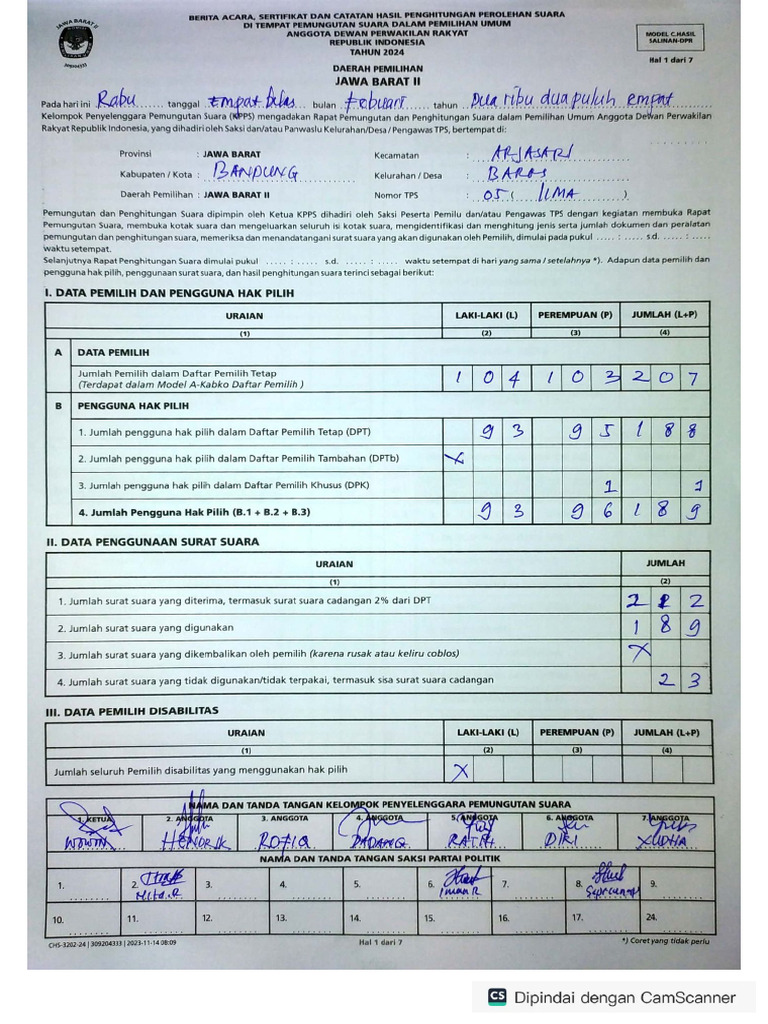 BERITA ACARA, SERTIFIKAT DAN CATATAN HASIL PENGHITUNGAN PEROLEHAN SUARA
DI TEMPAT PEMUNGUTAN SUARA DALAM PEMILIHAN UMUM
ANGGOTA DEWAN PERWAKILAN RAKYAT
REPUBLIK INDONESIA
TAHUN 2024
JAWA BARAT II
309204333
MODEL C.HASIL
SALINAN-DPR
Hal 1 dari 7
DAERAH PEMILIHAN
JAWA BARAT II
Pada hari ini Rabu tanggal Empat belas bulan Febuari tahun Dua ribu dua puluh empat
Kelompok Penyelenggara Pemungutan Suara (KPPS) mengadakan Rapat Pemungutan dan Penghitungan Suara dalam Pemilihan Umum Anggota Dewan Perwakilan
Rakyat Republik Indonesia, yang dihadiri oleh Saksi dan/atau Panwaslu Kelurahan/Desa / Pengawas TPS, bertempat di:
Provinsi : JAWA BARAT Kecamatan : ARJASARI
Kabupaten / Kota : BANDUNG Kelurahan / Desa : BAROS
Daerah Pemilihan : JAWA BARAT II Nomor TPS : 05 ( LIMA )
Pemungutan dan Penghitungan Suara dipimpin oleh Ketua KPPS dihadiri oleh Saksi Peserta Pemilu dan/atau Pengawas TPS dengan kegiatan membuka Rapat
Pemungutan Suara, membuka kotak suara dan mengeluarkan seluruh isi kotak suara, mengidentifikasi dan menghitung jenis serta jumlah dokumen dan peralatan
pemungutan dan penghitungan suara, memeriksa dan menandatangani surat suara yang akan digunakan oleh Pemilih, dimulai pada pukul ..... : ..... s.d. ..... : .....
waktu setempat.
Selanjutnya Rapat Penghitungan Suara dimulai pukul ..... : ..... s.d. ..... : ..... waktu setempat di hari yang sama / setelahnya *). Adapun data pemilih dan
pengguna hak pilih, penggunaan surat suara, dan hasil penghitungan suara terinci sebagai berikut:
I. DATA PEMILIH DAN PENGGUNA HAK PILIH
URAIAN LAKI-LAKI (L) PEREMPUAN (P) JUMLAH (L+P)
(1) (2) (3) (4)
A DATA PEMILIH
Jumlah Pemilih dalam Daftar Pemilih Tetap
(Terdapat dalam Model A-Kabko Daftar Pemilih ) 104 103 207
B PENGGUNA HAK PILIH
1. Jumlah pengguna hak pilih dalam Daftar Pemilih Tetap (DPT) 93 95 188
2. Jumlah pengguna hak pilih dalam Daftar Pemilih Tambahan (DPTb) X
3. Jumlah pengguna hak pilih dalam Daftar Pemilih Khusus (DPK) 1 1
4. Jumlah Pengguna Hak Pilih (B.1 + B.2 + B.3) 93 96 189
II. DATA PENGGUNAAN SURAT SUARA
URAIAN JUMLAH
(1) (2)
1. Jumlah surat suara yang diterima, termasuk surat suara cadangan 2% dari DPT 212
2. Jumlah surat suara yang digunakan 189
3. Jumlah surat suara yang dikembalikan oleh pemilih (karena rusak atau keliru coblos) X
4. Jumlah surat suara yang tidak digunakan/tidak terpakai, termasuk sisa surat suara cadangan 23
III. DATA PEMILIH DISABILITAS
URAIAN LAKI-LAKI (L) PEREMPUAN (P) JUMLAH (L+P)
(1) (2) (3) (4)
Jumlah seluruh Pemilih disabilitas yang menggunakan hak pilih X
NAMA DAN TANDA TANGAN KELOMPOK PENYELENGGARA PEMUNGUTAN SUARA
1. KETUA 2. ANGGOTA 3. ANGGOTA 4. ANGGOTA 5. ANGGOTA 6. ANGGOTA 7. ANGGOTA
WOWON HENDRIK ROFIQ DADANG RATIH DIRI YUDHA
NAMA DAN TANDA TANGAN SAKSI PARTAI POLITIK
1. 2. 3. 4. 5. 6. 7. 8. 9.
Mita.R Iman R
10. 11. 12. 13. 14. 15. 16. 17. 24.
CHS-3202-24 | 309204333 | 2023-11-14 08:09 Hal 1 dari 7 *) Coret yang tidak perlu
CS Dipindai dengan CamScanner